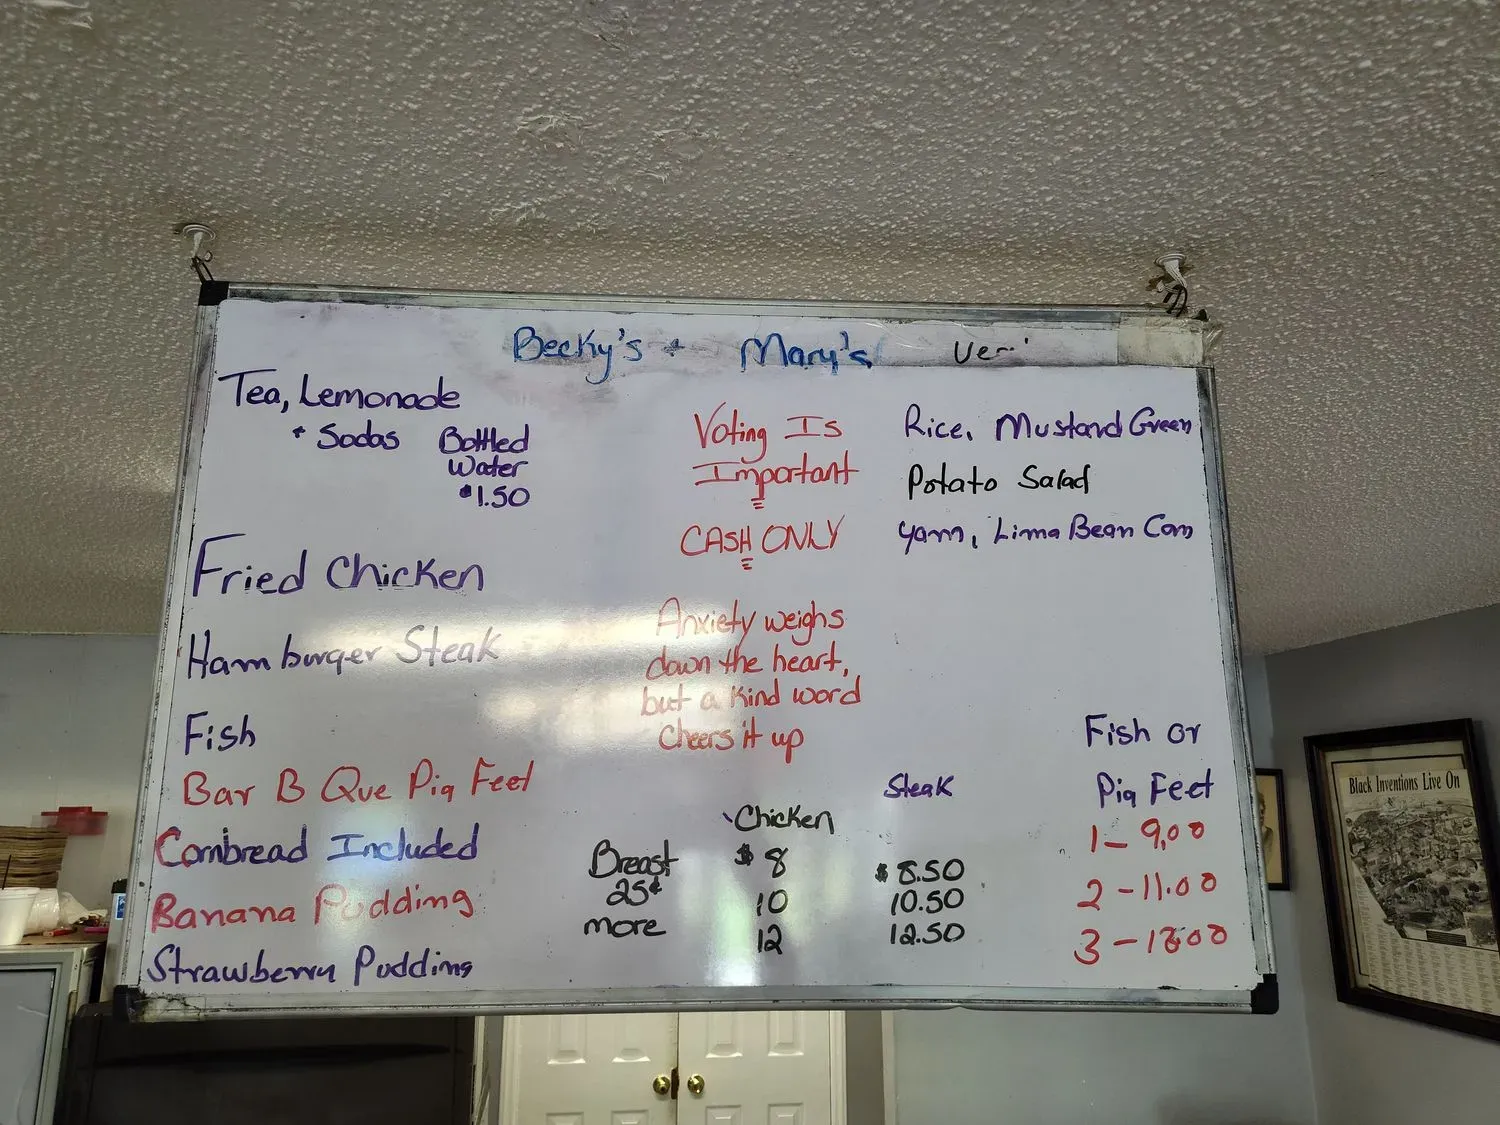 Becky's + Mary's
Tea, Lemonade
+ Sodas Bottled
Water
$1.50
Fried Chicken
Hamburger Steak
Fish
Bar B Que Pig Feet
Cornbread Included
Banana Pudding
Strawberry Pudding
Voting Is
Important
CASH ONLY
Anxiety weighs
down the heart,
but a kind word
cheers it up
Rice, Mustard Green
Potato Salad
Yam, Lima Bean Corn
Breast
25¢
more
Chicken
$8
10
12
Steak
$8.50
10.50
12.50
Fish or
Pig Feet
1 - 9.00
2 - 11.00
3 -
Black Inventions Live On